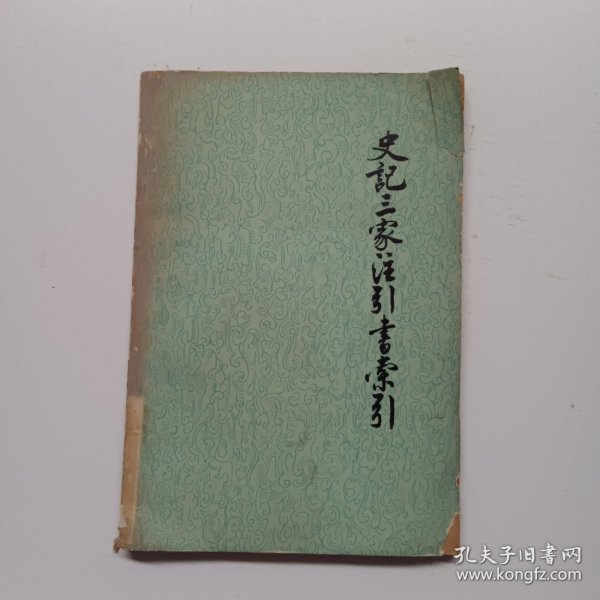 史記三家注引書索引
孔夫子旧書网
www.kongfz.com